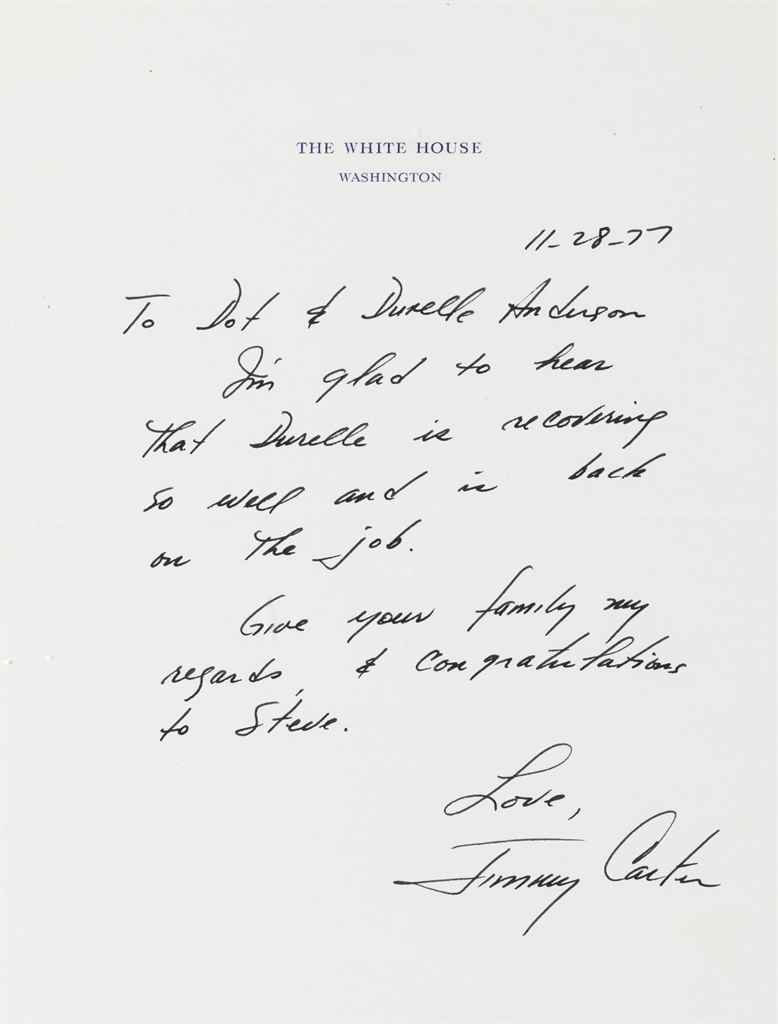 THE WHITE HOUSE
WASHINGTON
11-28-77
To Dot & Durelle Anderson
I'm glad to hear
that Durelle is recovering
so well and is back
on the job.
Give your family my
regards, & congratulations
to Steve.
Love,
Jimmy Carter